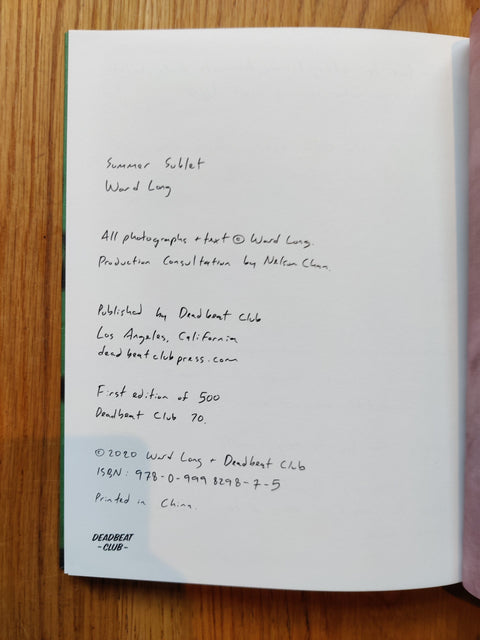 Summer Sublet
Ward Long
All photographs + text © Ward Long.
Production Consultation by Nelson Chan.
Published by Deadbeat Club
Los Angeles, California
deadbeatclubpress.com
First edition of 500
Deadbeat Club 70.
© 2020 Ward Long + Deadbeat Club
ISBN: 978-0-999 8298-7-5
Printed in China.
DEADBEAT
-CLUB-